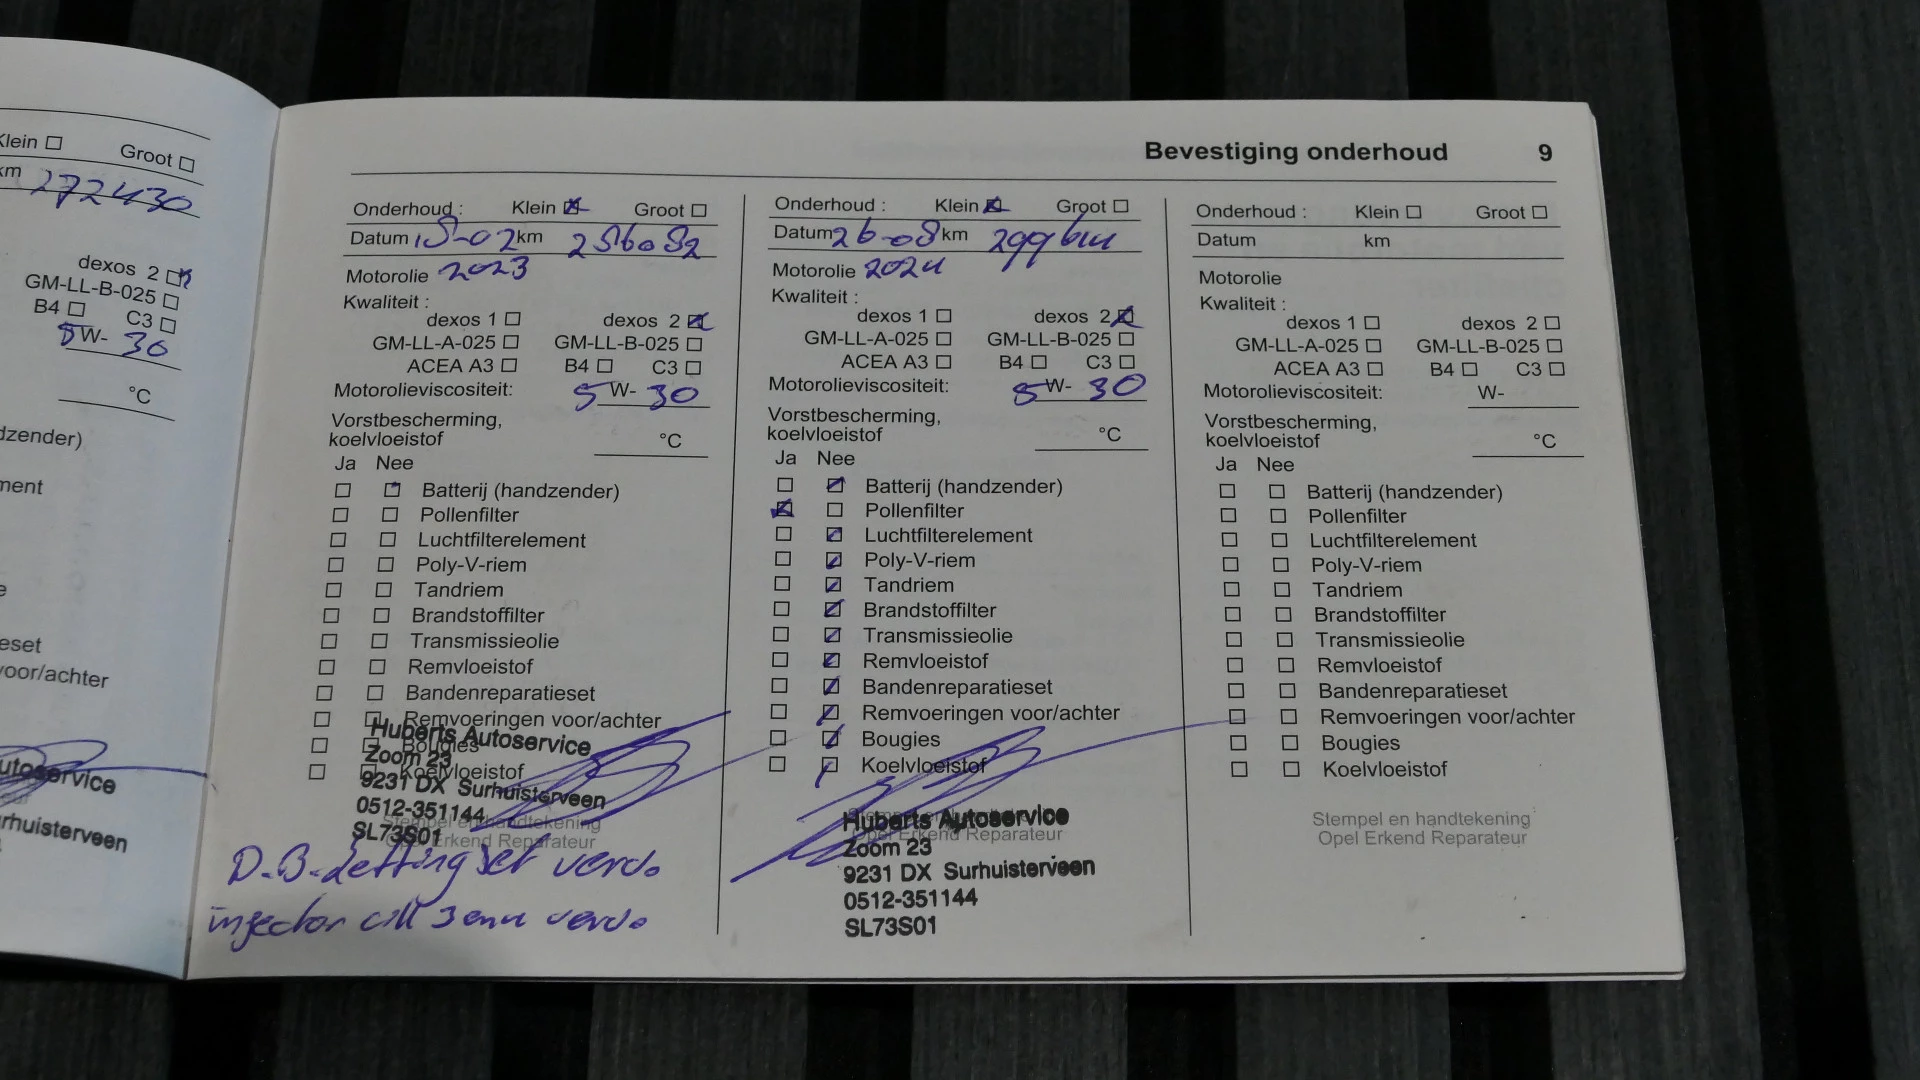 Klein Groot
km 272430
dexos 2
GM-LL-B-025
B4 C3
5W- 30
°C
dzender)
ment
e
eset
voor/achter
utoservice
rhuisterveen
Bevestiging onderhoud 9
Onderhoud : Klein Groot
Datum 15-02 km
Motorolie 2023
Kwaliteit :
dexos 1 dexos 2
GM-LL-A-025 GM-LL-B-025
ACEA A3 B4 C3
Motorolieviscositeit: 5 W- 30
Vorstbescherming,
koelvloeistof °C
Ja Nee
Batterij (handzender)
Pollenfilter
Luchtfilterelement
Poly-V-riem
Tandriem
Brandstoffilter
Transmissieolie
Remvloeistof
Bandenreparatieset
Remvoeringen voor/achter
Bougies
Koelvloeistof
Huberts Autoservice
Zoom 23
9231 DX Surhuisterveen
0512-351144
SL73S01
Stempel en handtekening
Opel Erkend Reparateur
set verv.
injector verv.
Onderhoud : Klein Groot
Datum 26-08 km
Motorolie 2024
Kwaliteit :
dexos 1 dexos 2
GM-LL-A-025 GM-LL-B-025
ACEA A3 B4 C3
Motorolieviscositeit: 5 W- 30
Vorstbescherming,
koelvloeistof °C
Ja Nee
Batterij (handzender)
Pollenfilter
Luchtfilterelement
Poly-V-riem
Tandriem
Brandstoffilter
Transmissieolie
Remvloeistof
Bandenreparatieset
Remvoeringen voor/achter
Bougies
Koelvloeistof
Stempel en handtekening
Opel Erkend Reparateur
Huberts Autoservice
Zoom 23
9231 DX Surhuisterveen
0512-351144
SL73S01
Onderhoud : Klein Groot
Datum km
Motorolie
Kwaliteit :
dexos 1 dexos 2
GM-LL-A-025 GM-LL-B-025
ACEA A3 B4 C3
Motorolieviscositeit: W-
Vorstbescherming,
koelvloeistof °C
Ja Nee
Batterij (handzender)
Pollenfilter
Luchtfilterelement
Poly-V-riem
Tandriem
Brandstoffilter
Transmissieolie
Remvloeistof
Bandenreparatieset
Remvoeringen voor/achter
Bougies
Koelvloeistof
Stempel en handtekening
Opel Erkend Reparateur